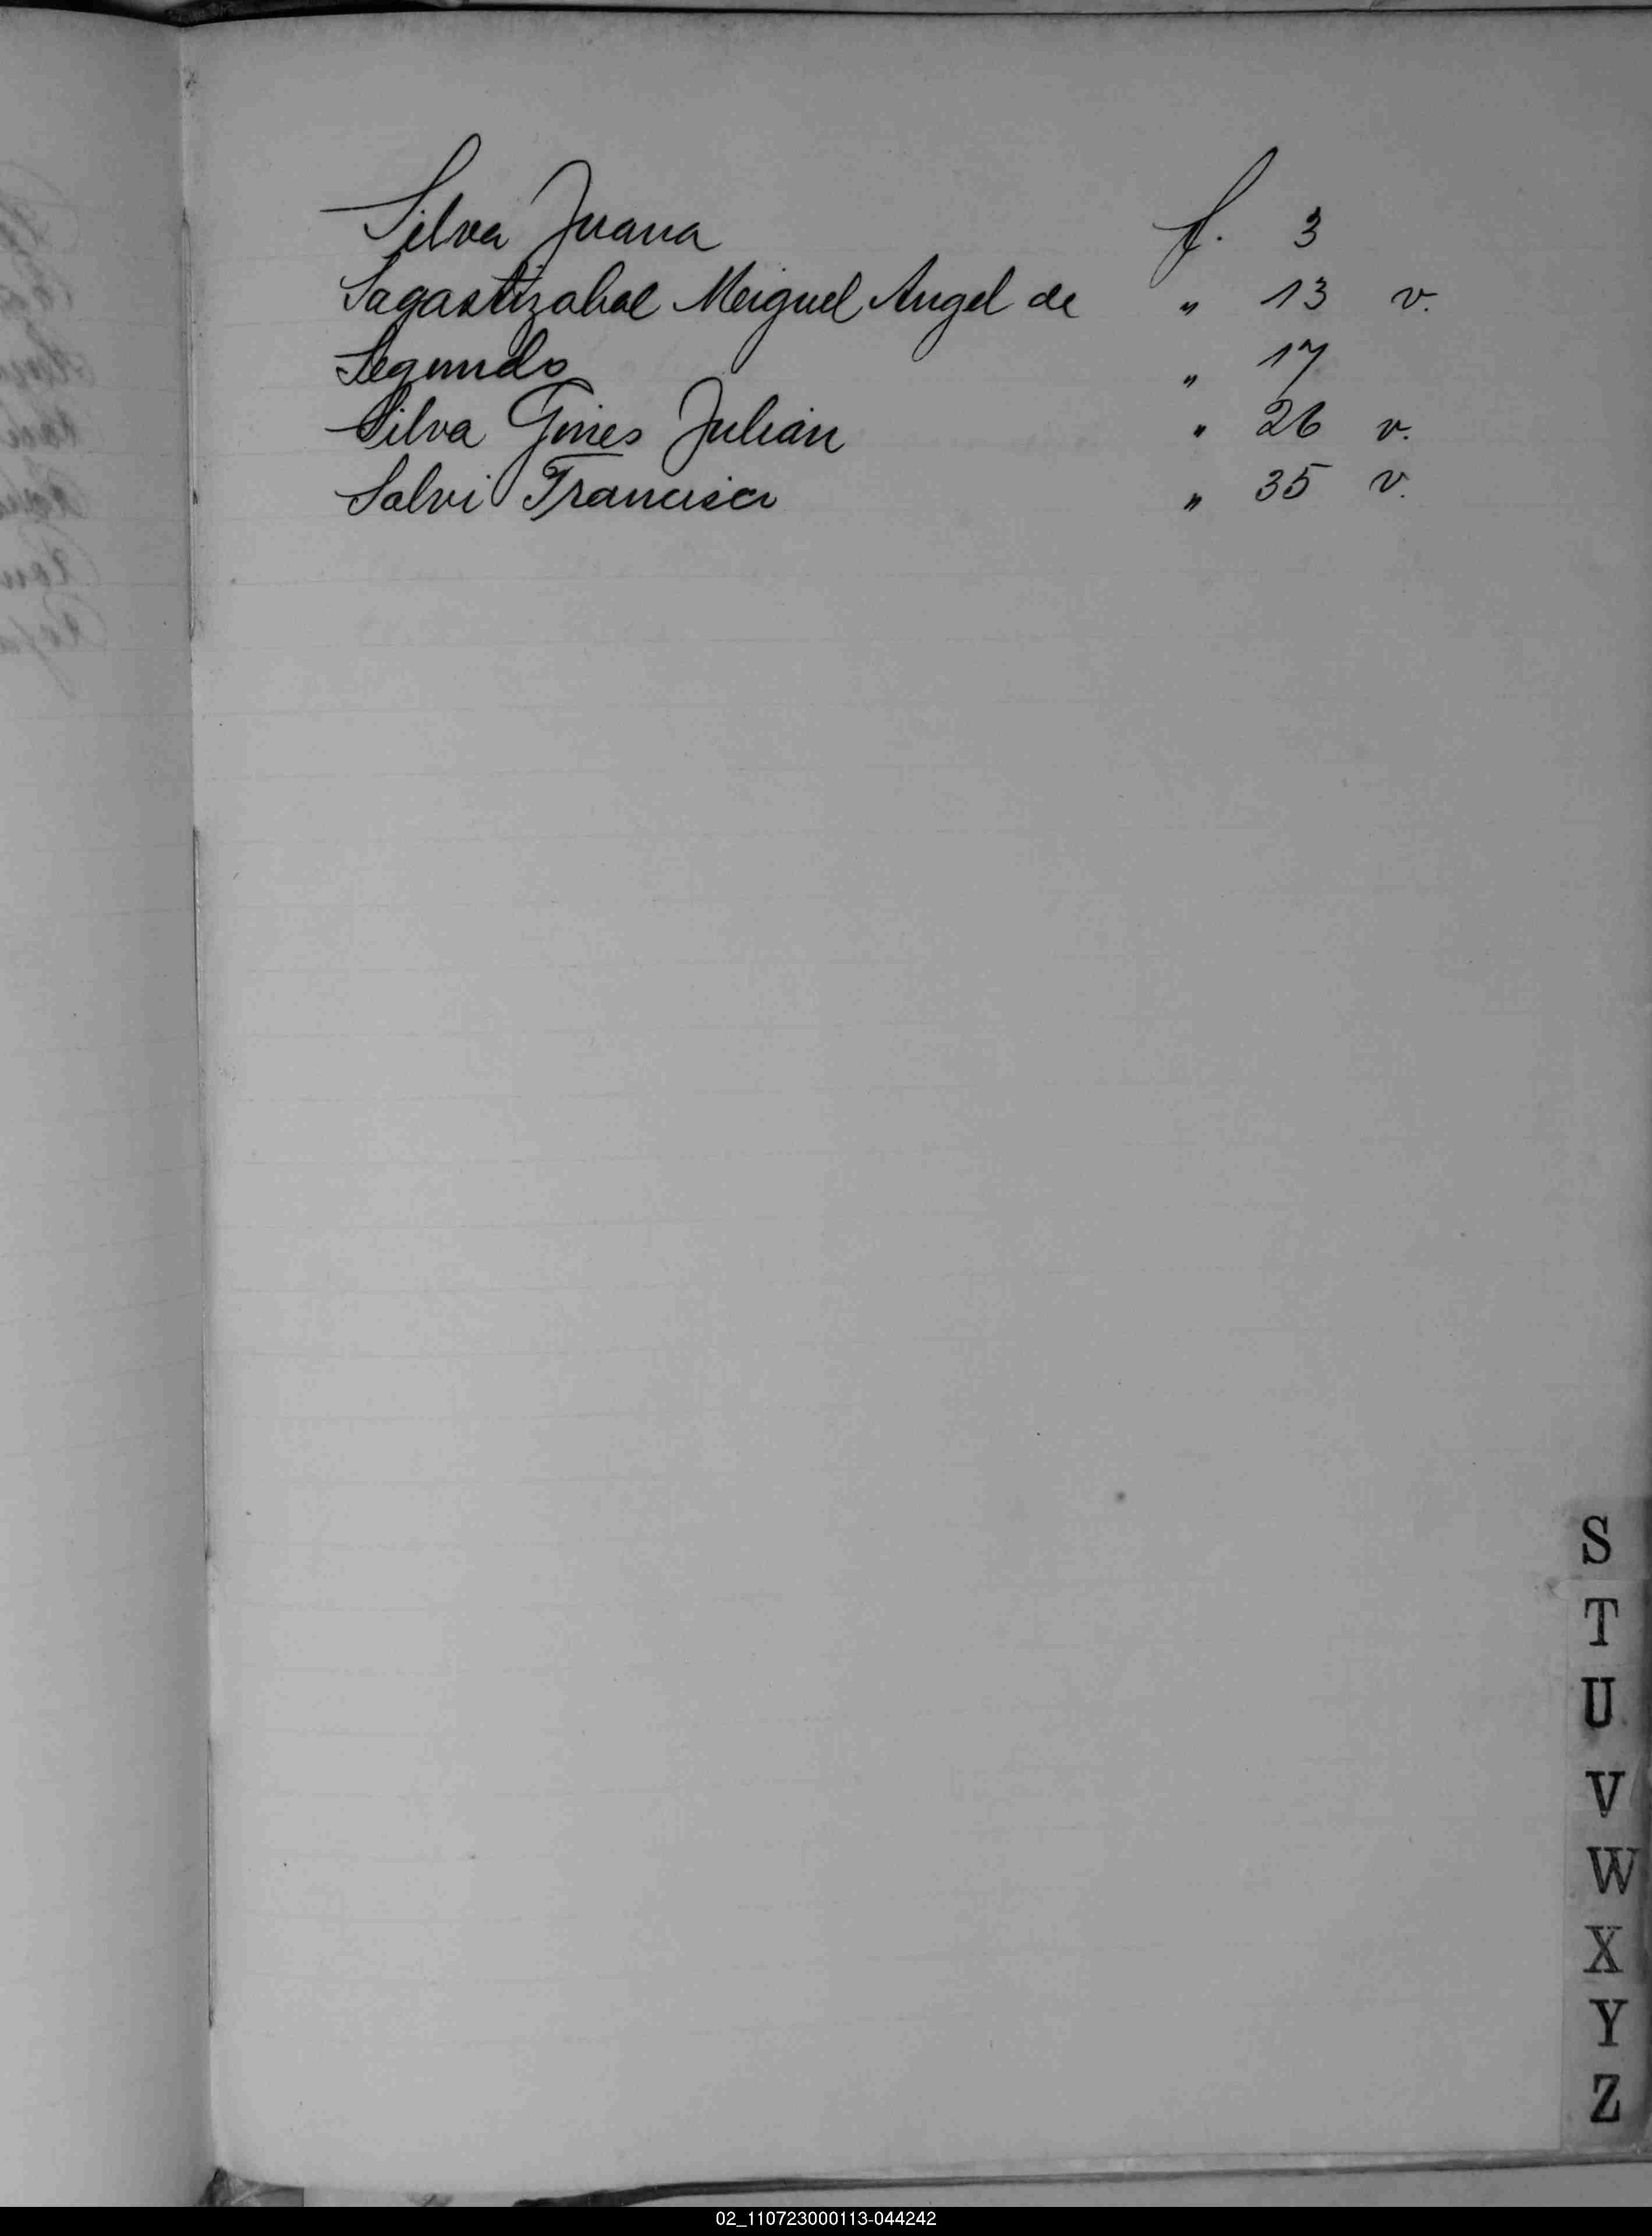 Silva Juana f. 3
Sagastizabal Meiguel Angel de " 13 v.
Segundo " 17
Silva Gines Julian " 26 v.
Salvi Francisco " 35 v.
S
T
U
V
W
X
Y
Z
02_110723000113-044242